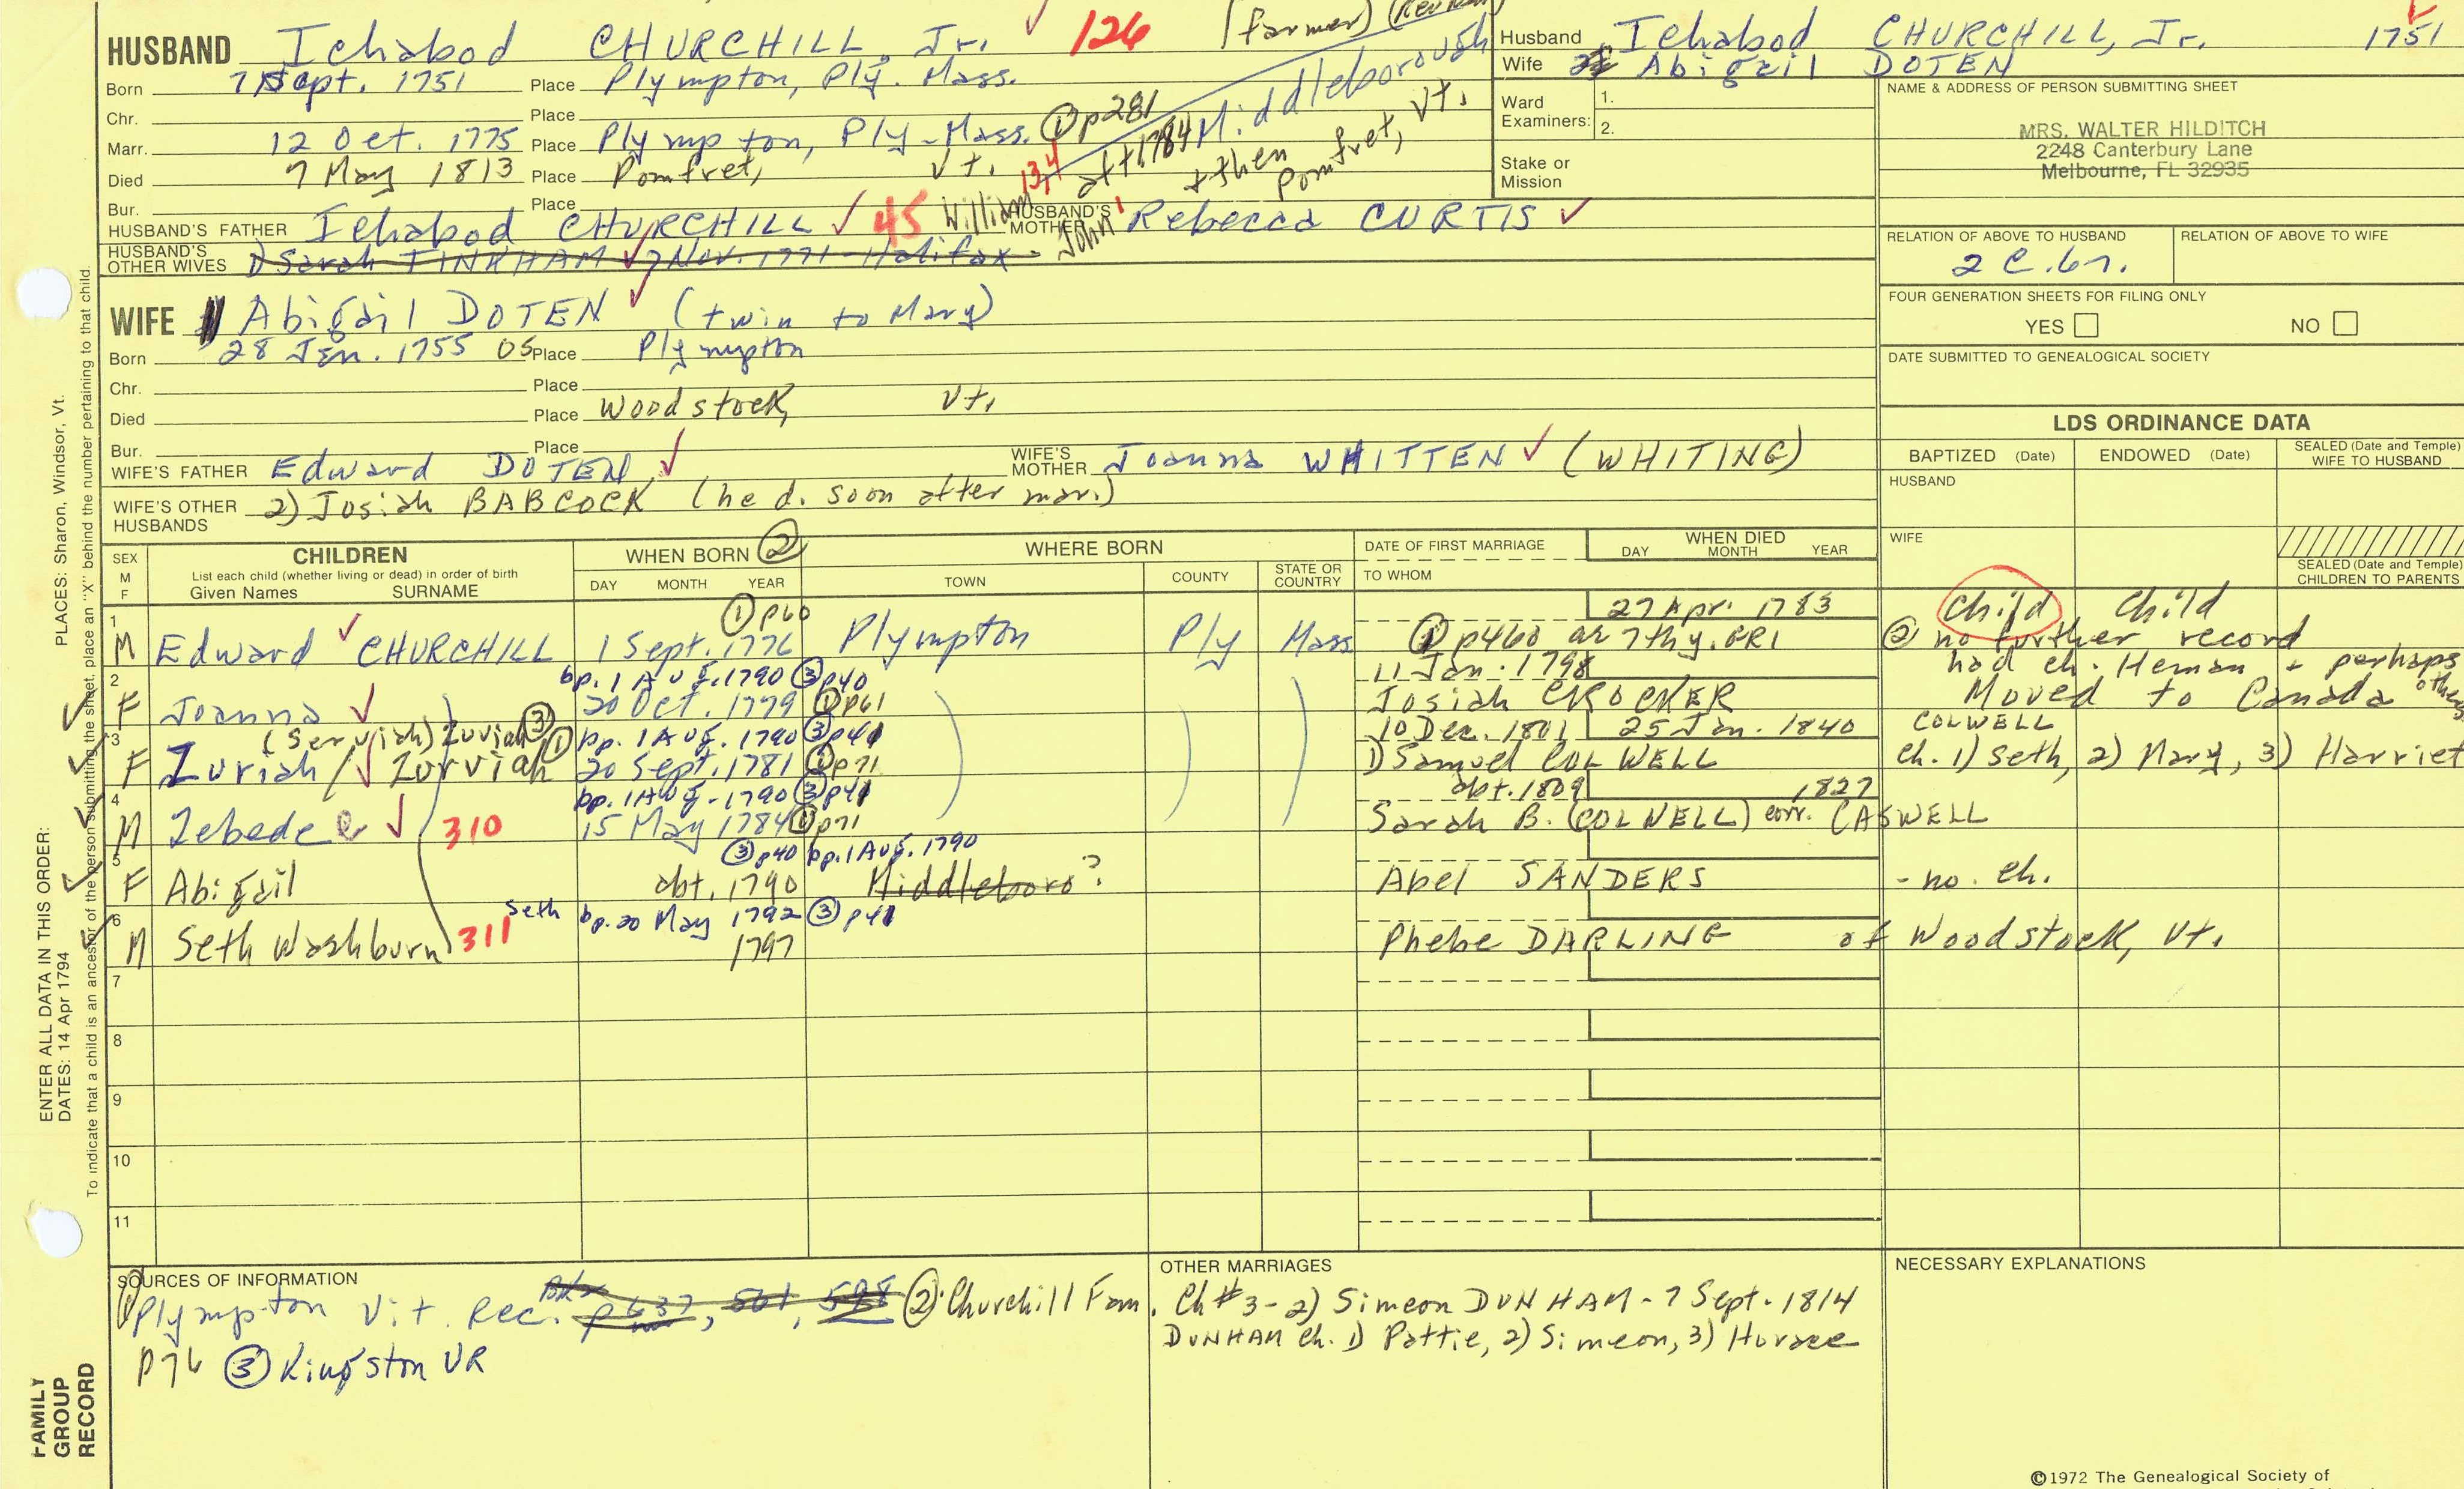 HUSBAND Ichabod CHURCHILL, Jr. 126 (farmer)
Born 7 Sept. 1751 Place Plympton, Ply. Mass.
Chr. Place
Marr. 12 Oct. 1775 Place Plympton, Ply-Mass. ① p281
Died 7 May 1813 Place Pomfret, Vt.
att 1784 Middleborough
& then Pomfret, Vt.
Bur. Place
HUSBAND'S FATHER Ichabod CHURCHILL ✓ 45 William 134 John HUSBAND'S MOTHER Rebecca CURTIS ✓
HUSBAND'S OTHER WIVES 1) Sarah TINKHAM ✓ 7 Nov. 1771 - Halifax -
WIFE Abigail DOTEN ✓ (twin to Mary)
Born 28 Jan. 1755 OS Place Plympton
Chr. Place
Died Place Woodstock, Vt.
Bur. Place
WIFE'S FATHER Edward DOTEN ✓ WIFE'S MOTHER Joanna WHITTEN ✓ (WHITING)
WIFE'S OTHER HUSBANDS 2) Josiah BABCOCK (he d. soon after mar.)
Husband Ichabod CHURCHILL, Jr. 1751
Wife Abigail DOTEN
Ward Examiners: 1.
2.
Stake or Mission
NAME & ADDRESS OF PERSON SUBMITTING SHEET
MRS. WALTER HILDITCH
2248 Canterbury Lane
Melbourne, FL 32935
RELATION OF ABOVE TO HUSBAND RELATION OF ABOVE TO WIFE
2 C.6r.
FOUR GENERATION SHEETS FOR FILING ONLY
YES NO
DATE SUBMITTED TO GENEALOGICAL SOCIETY
LDS ORDINANCE DATA
BAPTIZED (Date) ENDOWED (Date) SEALED (Date and Temple) WIFE TO HUSBAND
HUSBAND
WIFE
SEALED (Date and Temple) CHILDREN TO PARENTS
SEX M F CHILDREN WHEN BORN ② WHERE BORN DATE OF FIRST MARRIAGE WHEN DIED
List each child (whether living or dead) in order of birth
Given Names SURNAME DAY MONTH YEAR TOWN COUNTY STATE OR COUNTRY TO WHOM DAY MONTH YEAR
1 ① p60 27 Apr. 1783 Child Child
M Edward ✓ CHURCHILL 1 Sept. 1776 Plympton Ply Mass ① p460 as 7thy. GR1 ② no further record
2 bp. 1 Aug. 1790 ③ p40 11 Jan. 1798 had ch. Heman + perhaps others
F Joanna ✓ 20 Oct. 1779 ① p61 Josiah CROCKER Moved to Canada
3 (Serviah) Zuviah ③ bp. 1 Aug. 1790 ③ p41 10 Dec. 1801 25 Jan. 1840 COLWELL
F Zuriah / ✓ Zurviah ① 20 Sept. 1781 ① p71 1) Samuel COLWELL Ch. 1) Seth, 2) Mary, 3) Harriet
4 bp. 1 Aug - 1790 ③ p41 abt. 1809 1827
M Zebedee ✓ 310 15 May 1784 ① p71 Sarah B. (COLWELL) corr. CASWELL
5 ③ p40 bp. 1 Aug. 1790
F Abigail abt. 1790 Middleboro? Abel SANDERS - no. ch.
6 Seth bp. 20 May 1792 ③ p41
M Seth Washburn 311 1797 Phebe DARLING of Woodstock, Vt.
7
8
9
10
11
SOURCES OF INFORMATION
① Plympton Vit. Rec. p 637, 561, 598 ② Churchill Fam.
p76 ③ Kingston VR
OTHER MARRIAGES
Ch #3 - 2) Simeon DUNHAM - 7 Sept. 1814
DUNHAM Ch. 1) Pattie, 2) Simeon, 3) Horace
NECESSARY EXPLANATIONS
©1972 The Genealogical Society of
PLACES: Sharon, Windsor, Vt.
To indicate that a child is an ancestor of the person submitting the sheet, place an "X" behind the number pertaining to that child.
ENTER ALL DATA IN THIS ORDER:
DATES: 14 Apr 1794
FAMILY
GROUP
RECORD